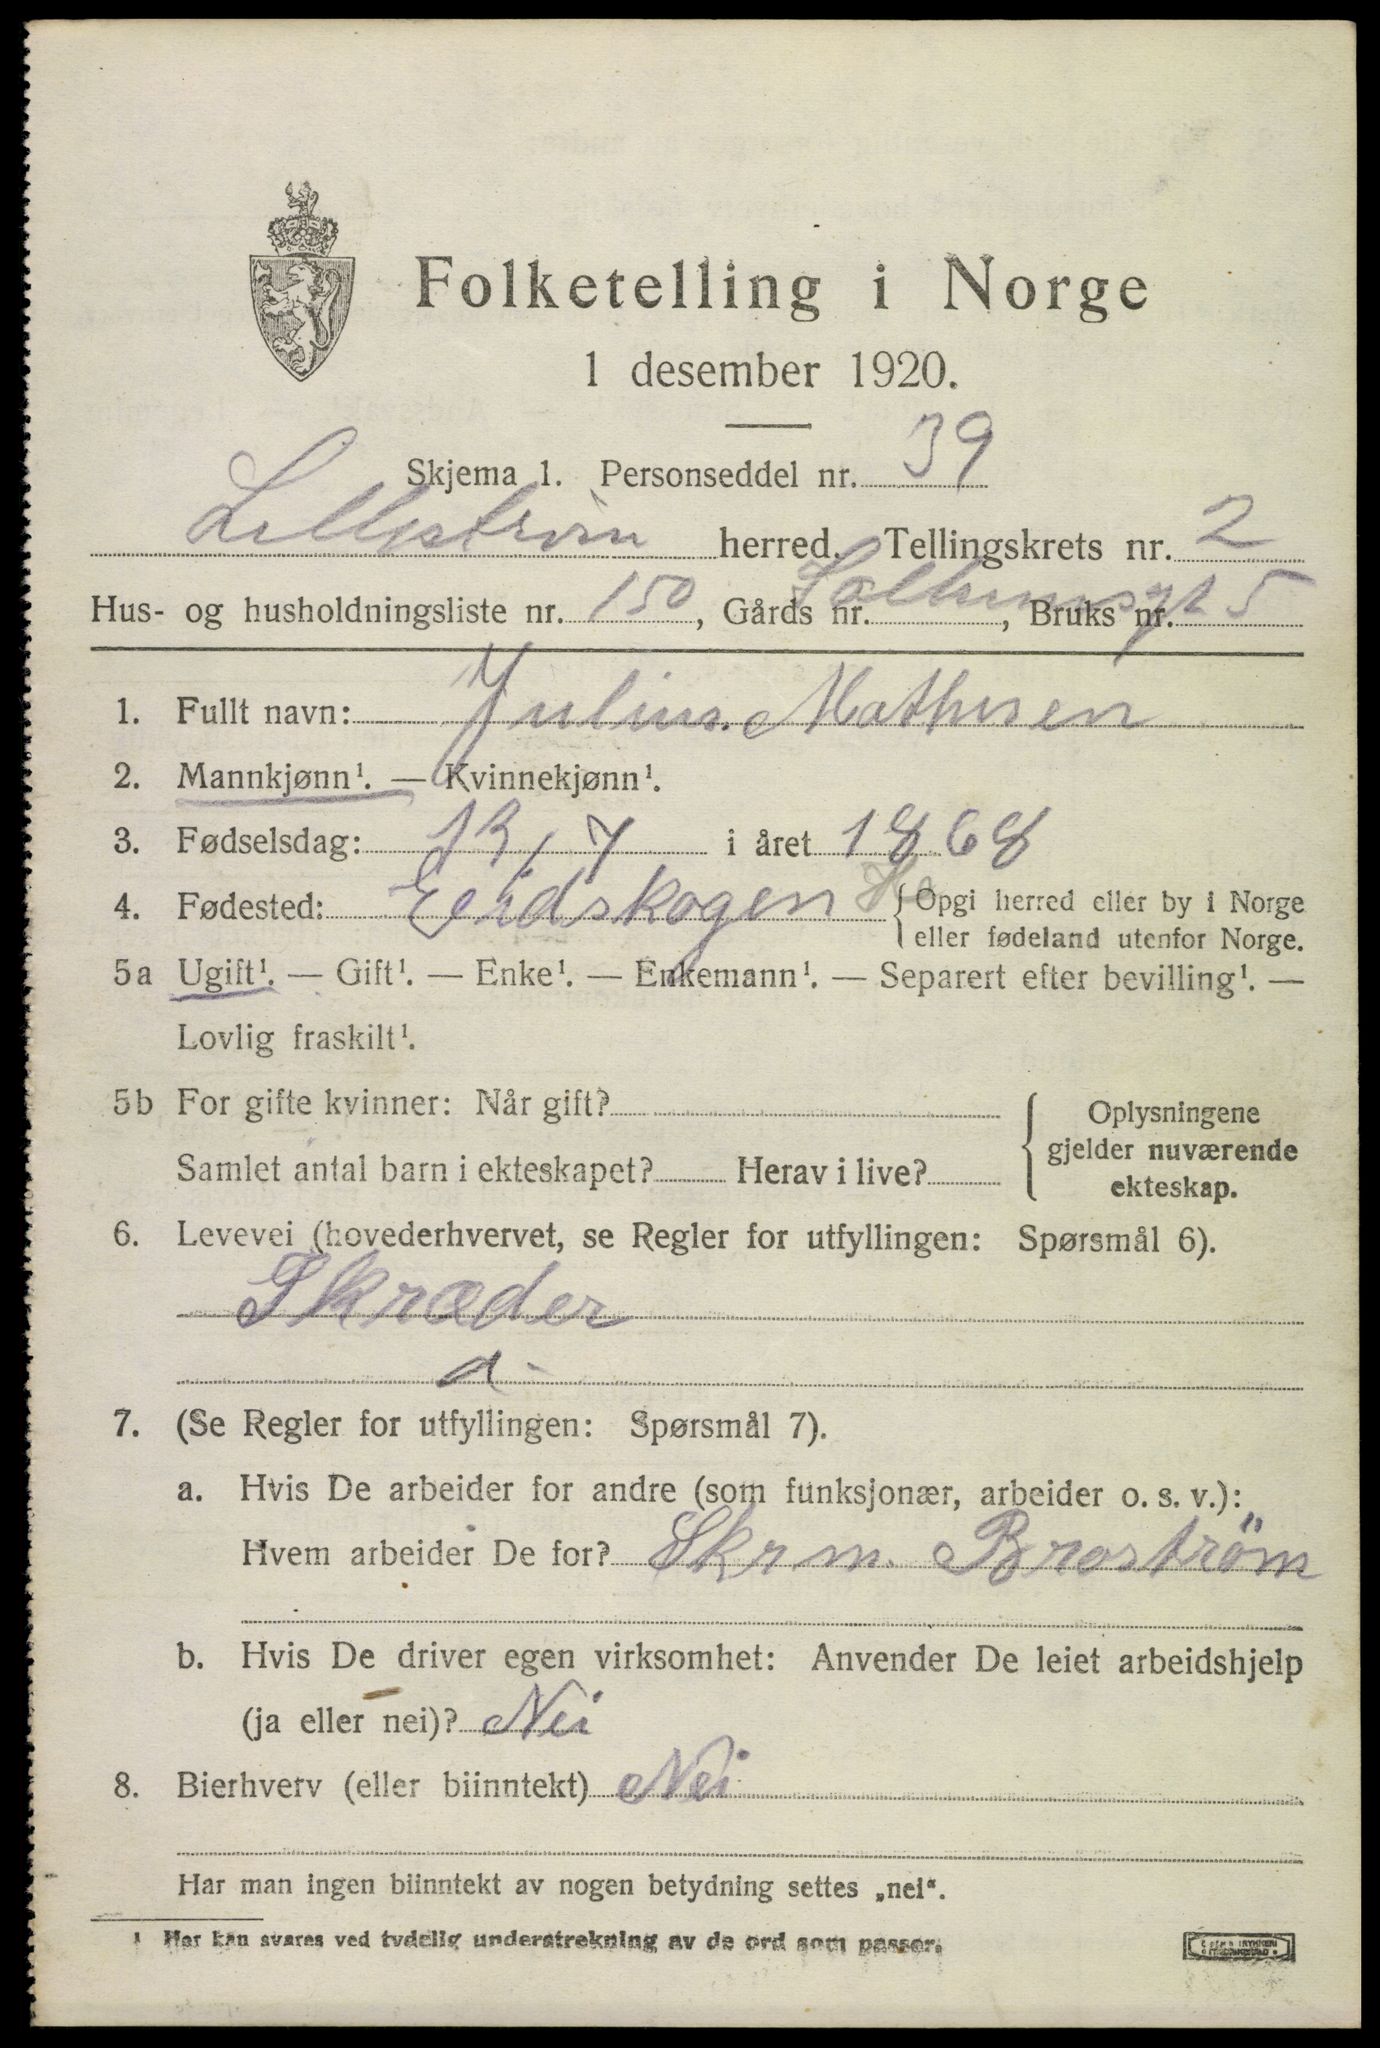 Folketelling i Norge
1 desember 1920.
Skjema 1. Personseddel nr. 39
Lillestrøm herred. Tellingskrets nr. 2
Hus- og husholdningsliste nr. 150, Gårds nr. Solheimsgt 5, Bruks nr.
1. Fullt navn: Julius Mathisen
2. Mannkjønn¹. — Kvinnekjønn¹.
3. Fødselsdag: 7 i året 1868
4. Fødested: Eidskogen He {Opgi herred eller by i Norge
eller fødeland utenfor Norge.
5a Ugift¹. — Gift¹. — Enke¹. — Enkemann¹. — Separert efter bevilling¹. —
Lovlig fraskilt¹.
5b For gifte kvinner: Når gift?
Samlet antal barn i ekteskapet? Herav i live?
Oplysningene
gjelder nuværende
ekteskap.
6. Levevei (hovederhvervet, se Regler for utfyllingen: Spørsmål 6).
Skræder
a-
7. (Se Regler for utfyllingen: Spørsmål 7).
a. Hvis De arbeider for andre (som funksjonær, arbeider o. s. v.):
Hvem arbeider De for? Skr m. Broström
b. Hvis De driver egen virksomhet: Anvender De leiet arbeidshjelp
(ja eller nei)? Nei
8. Bierhverv (eller biinntekt) Nei
Har man ingen biinntekt av nogen betydning settes „nei".
1 Her kan svares ved tydelig understrekning av de ord som passer.